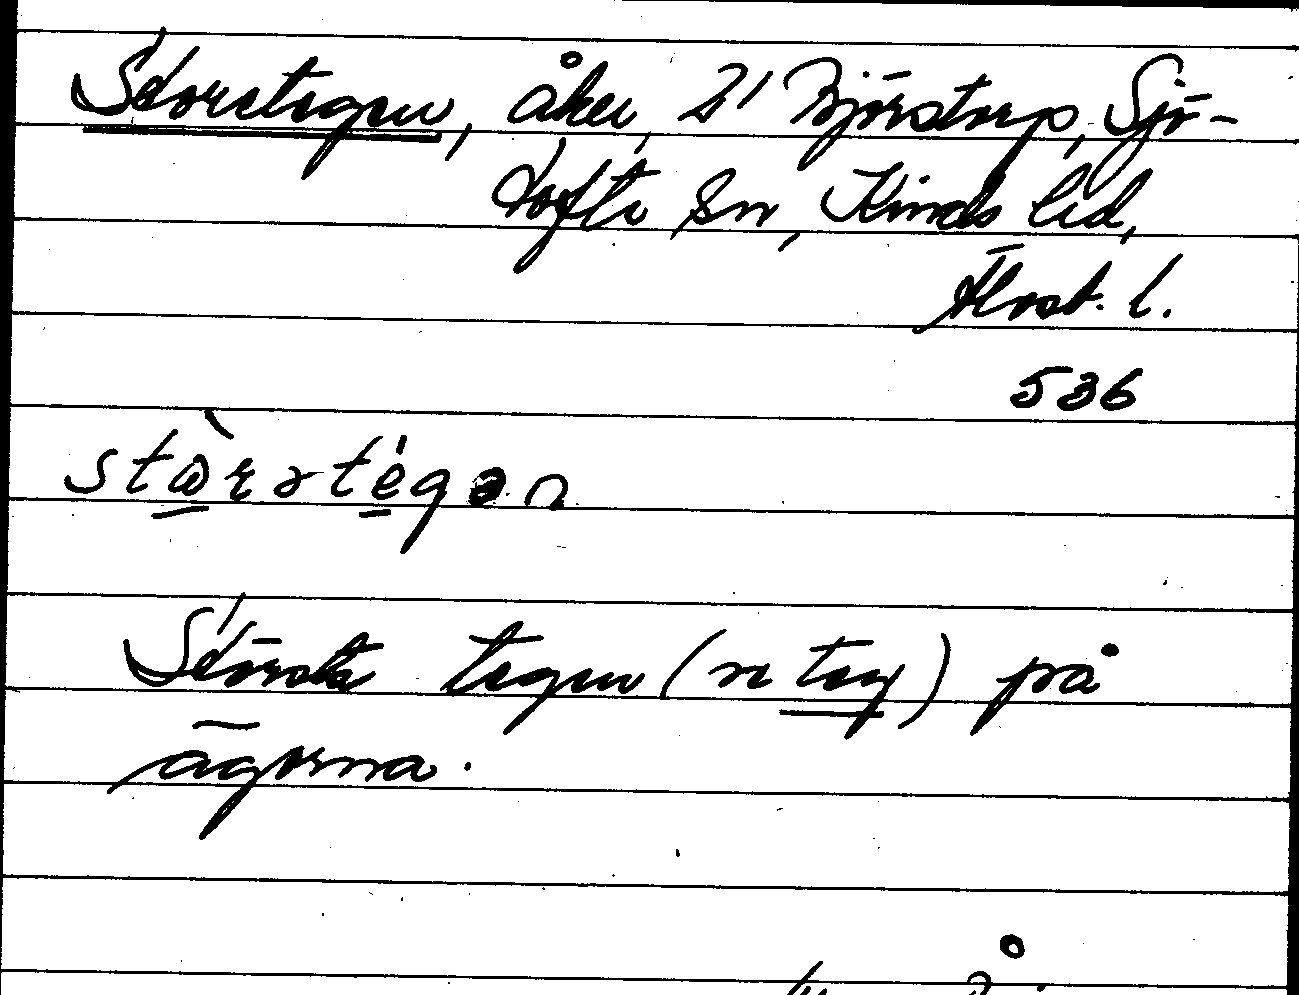 Storetegen, åker, 2¹ Björstorp, Sjö-
tofta sn, Kinds hd,
Älvsb. l.
536
stɷ̀rətégən
Största tegen (n teg) på
ägorna.